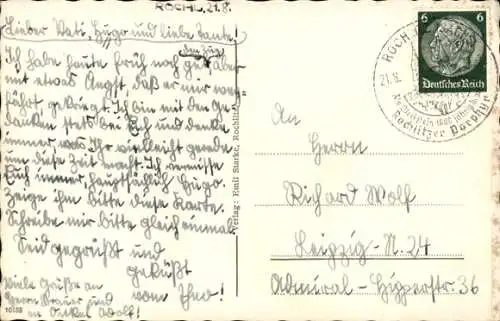 ROCHL. 21.8.
Lieber Vati, Hugo und liebe Tante!
den Zug
Ich habe heute früh noch gehabt aber
mit etwas Angst, daß er mir weg-
fährt gekriegt. Ich bin mit den Ge-
danken stets bei Euch und denke
immer was Ihr vielleicht gerade
um diese Zeit macht. Ich vermisse
Euch immer, hauptsächlich Hugo.
Zeige ihm bitte diese Karte.
Schreibe mir bitte gleich einmal.
Seid gegrüßt und
geküßt
vom
Viele Grüße an
Herrn und
Onkel Adolf!
10168
Verlag: Emil Starke, Rochlitz
6 6
Deutsches Reich
ROCHL
21.8.
Rochlitzer Porphyr
An
Herrn
Richard Wolf
Leipzig-N. 24
Admiral-Hipperstr. 36